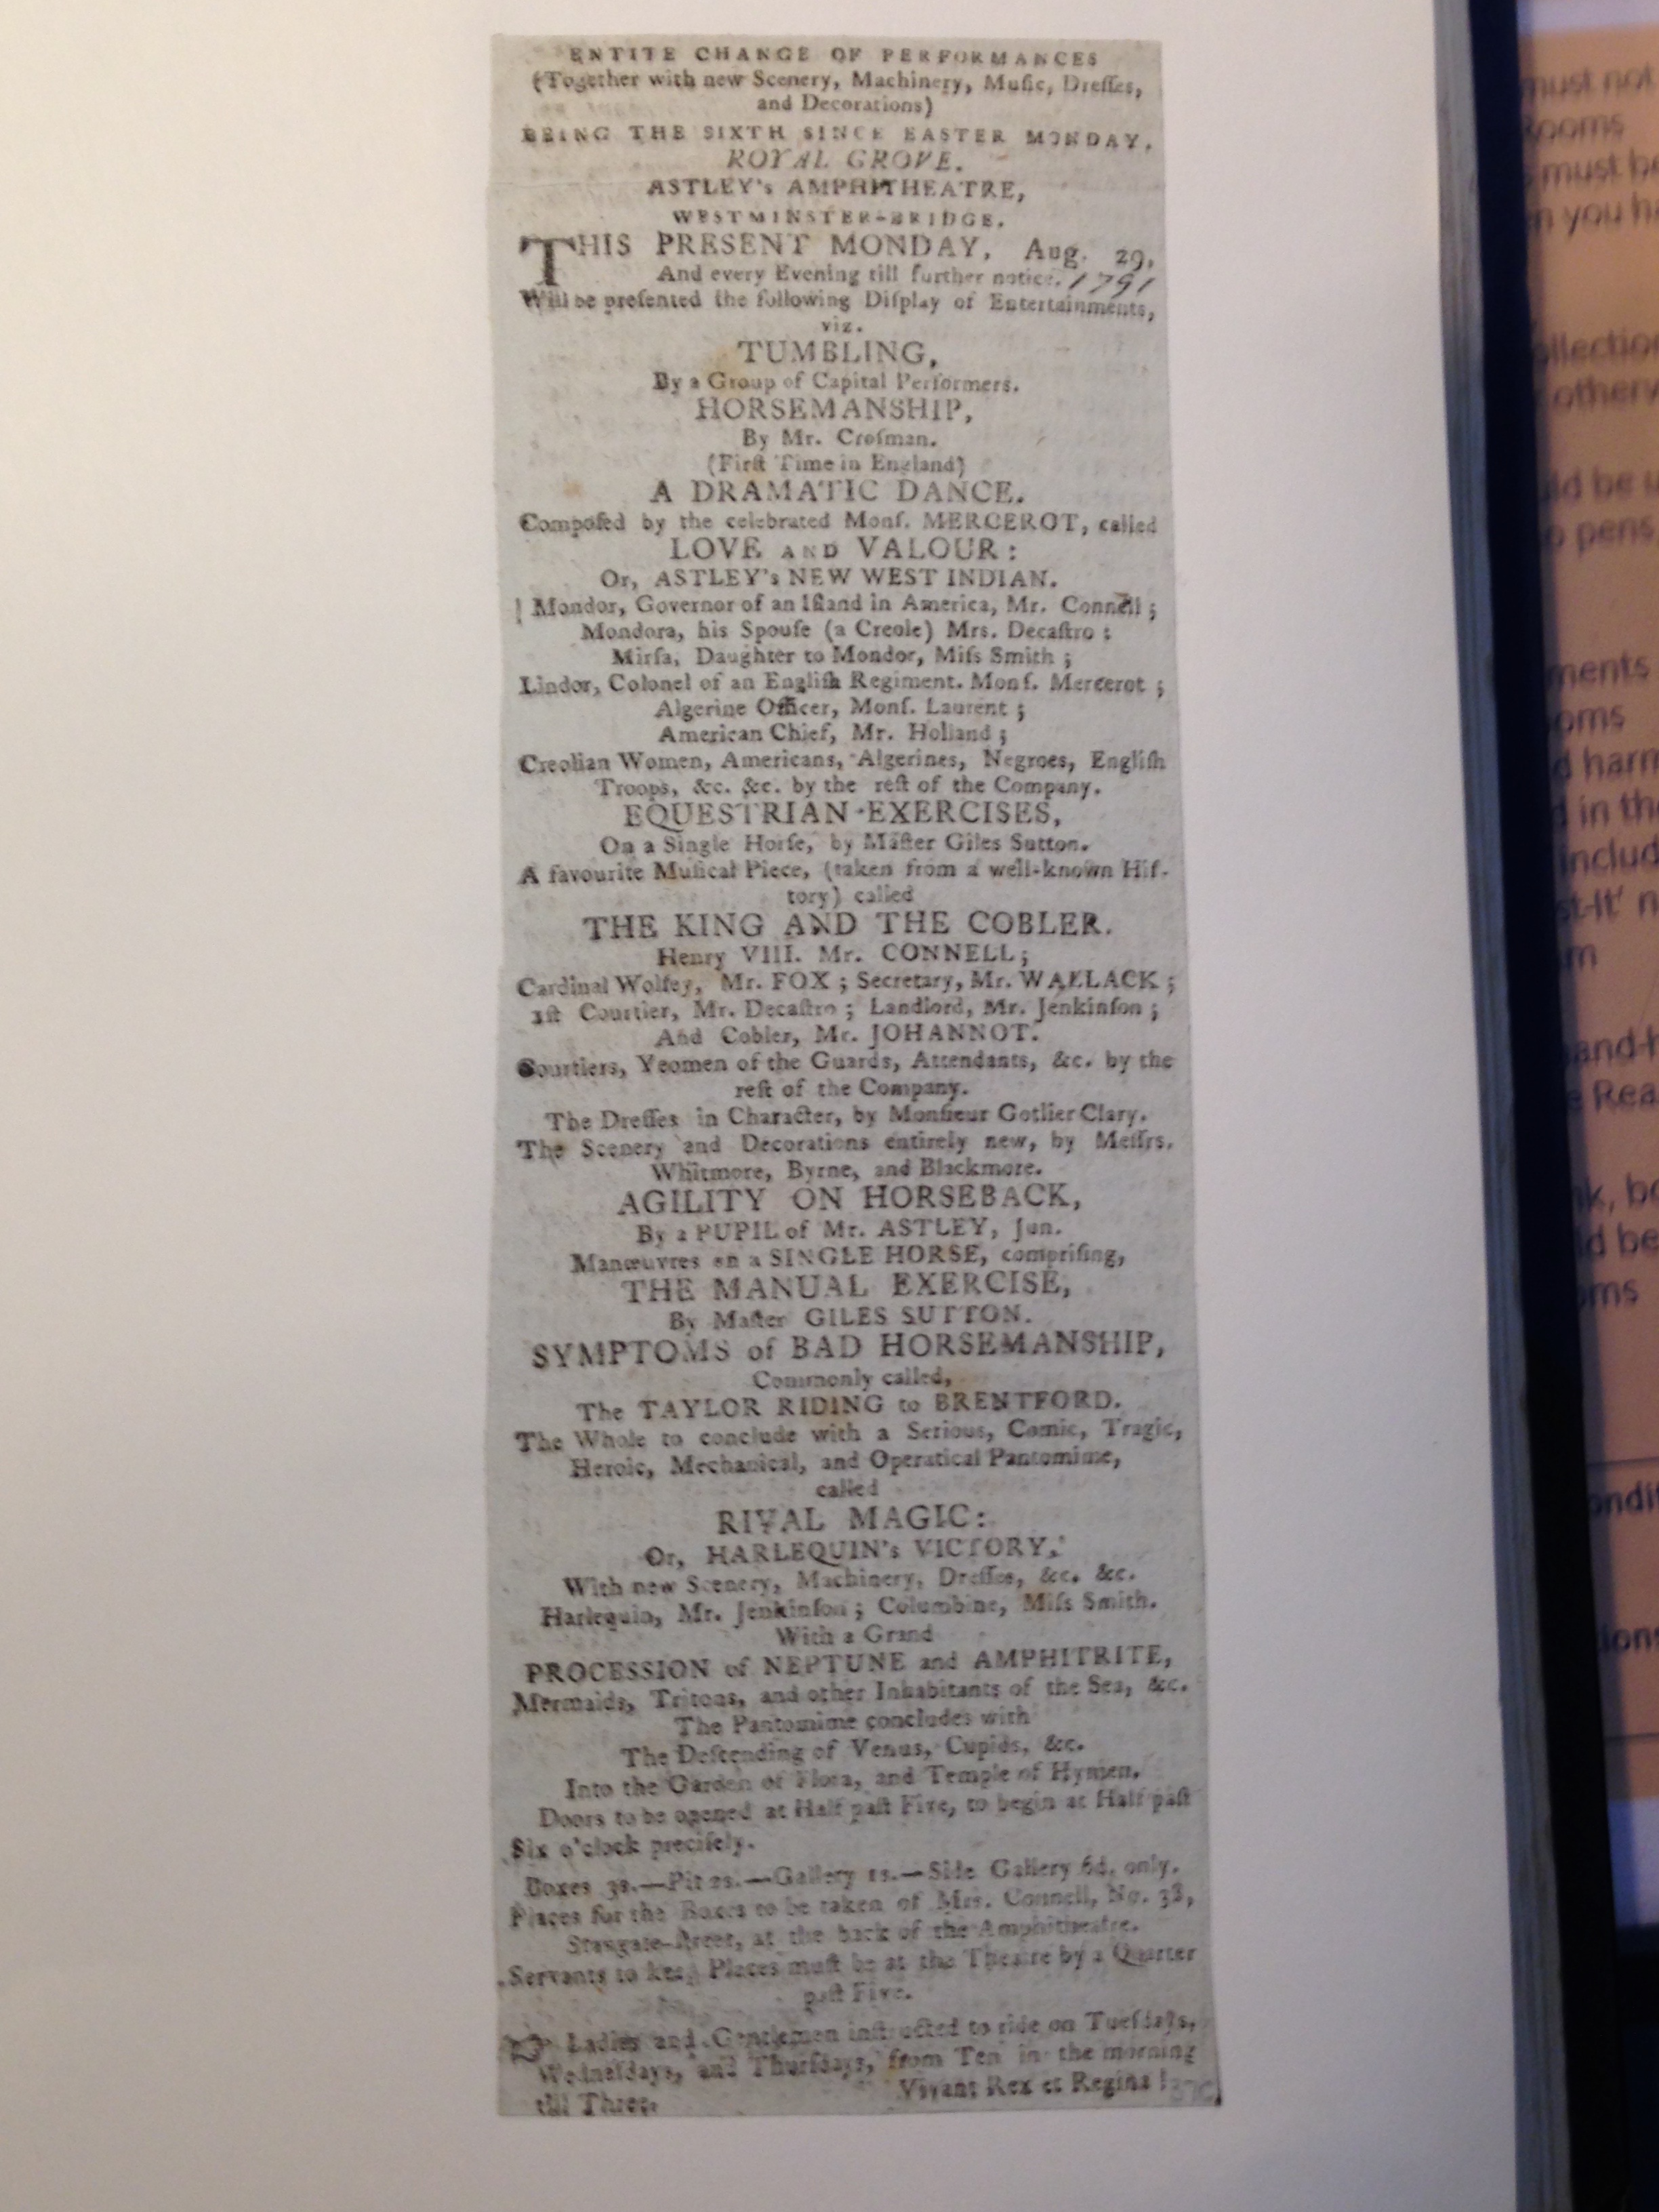 ENTITE CHANGE OF PERFORMANCES
(Together with new Scenery, Machinery, Muſic, Dreſſes,
and Decorations)
BEING THE SIXTH SINCE EASTER MONDAY.
ROYAL GROVE.
ASTLEY's AMPHITHEATRE,
WESTMINSTER-BRIDGE.
THIS PRESENT MONDAY, Aug. 29,
And every Evening till further notice. 1791
Will be preſented the following Diſplay of Entertainments,
viz.
TUMBLING,
By a Group of Capital Performers.
HORSEMANSHIP,
By Mr. Croſman.
(Firſt Time in England)
A DRAMATIC DANCE.
Compoſed by the celebrated Monſ. MERCEROT, called
LOVE AND VALOUR:
Or, ASTLEY's NEW WEST INDIAN.
Mondor, Governor of an Iſland in America, Mr. Connell;
Mondora, his Spouſe (a Creole) Mrs. Decaſtro;
Mirſa, Daughter to Mondor, Miſs Smith;
Lindor, Colonel of an Engliſh Regiment. Monſ. Mercerot;
Algerine Officer, Monſ. Laurent;
American Chief, Mr. Holland;
Creolian Women, Americans, Algerines, Negroes, Engliſh
Troops, &c. &c. by the reſt of the Company.
EQUESTRIAN EXERCISES,
On a Single Horſe, by Maſter Giles Sutton.
A favourite Muſical Piece, (taken from a well-known Hiſ-
tory) called
THE KING AND THE COBLER.
Henry VIII. Mr. CONNELL;
Cardinal Wolſey, Mr. FOX; Secretary, Mr. WALLACK;
1ſt Courtier, Mr. Decaſtro; Landlord, Mr. Jenkinſon;
And Cobler, Mr. JOHANNOT.
Courtiers, Yeomen of the Guards, Attendants, &c. by the
reſt of the Company.
The Dreſſes in Character, by Monſieur Gotlier Clary.
The Scenery and Decorations entirely new, by Meſſrs.
Whitmore, Byrne, and Blackmore.
AGILITY ON HORSEBACK,
By a PUPIL of Mr. ASTLEY, Jun.
Manœuvres on a SINGLE HORSE, compriſing,
THE MANUAL EXERCISE,
By Maſter GILES SUTTON.
SYMPTOMS of BAD HORSEMANSHIP,
Commonly called,
The TAYLOR RIDING to BRENTFORD.
The Whole to conclude with a Serious, Comic, Tragic,
Heroic, Mechanical, and Operatical Pantomime,
called
RIVAL MAGIC:
Or, HARLEQUIN's VICTORY,
With new Scenery, Machinery, Dreſſes, &c. &c.
Harlequin, Mr. Jenkinſon; Columbine, Miſs Smith.
With a Grand
PROCESSION of NEPTUNE and AMPHITRITE,
Mermaids, Tritons, and other Inhabitants of the Sea, &c.
The Pantomime concludes with
The Deſcending of Venus, Cupids, &c.
Into the Garden of Flora, and Temple of Hymen.
Doors to be opened at Half paſt Five, to begin at Half paſt
Six o'clock preciſely.
Boxes 3s.—Pit 2s.—Gallery 1s.—Side Gallery 6d. only.
Places for the Boxes to be taken of Mrs. Connell, No. 38,
Stangate-ſtreet, at the back of the Amphitheatre.
Servants to keep Places muſt be at the Theatre by a Quarter
paſt Five.
☞ Ladies and Gentlemen inſtructed to ride on Tueſdays,
Wedneſdays, and Thurſdays, from Ten in the morning
till Three. Vivant Rex et Regina!
must not
Rooms
must be
you ha
collection
otherw
be u
pens
ments
oms
harm
in the
includ
st-It' n
and-h
Rea
be